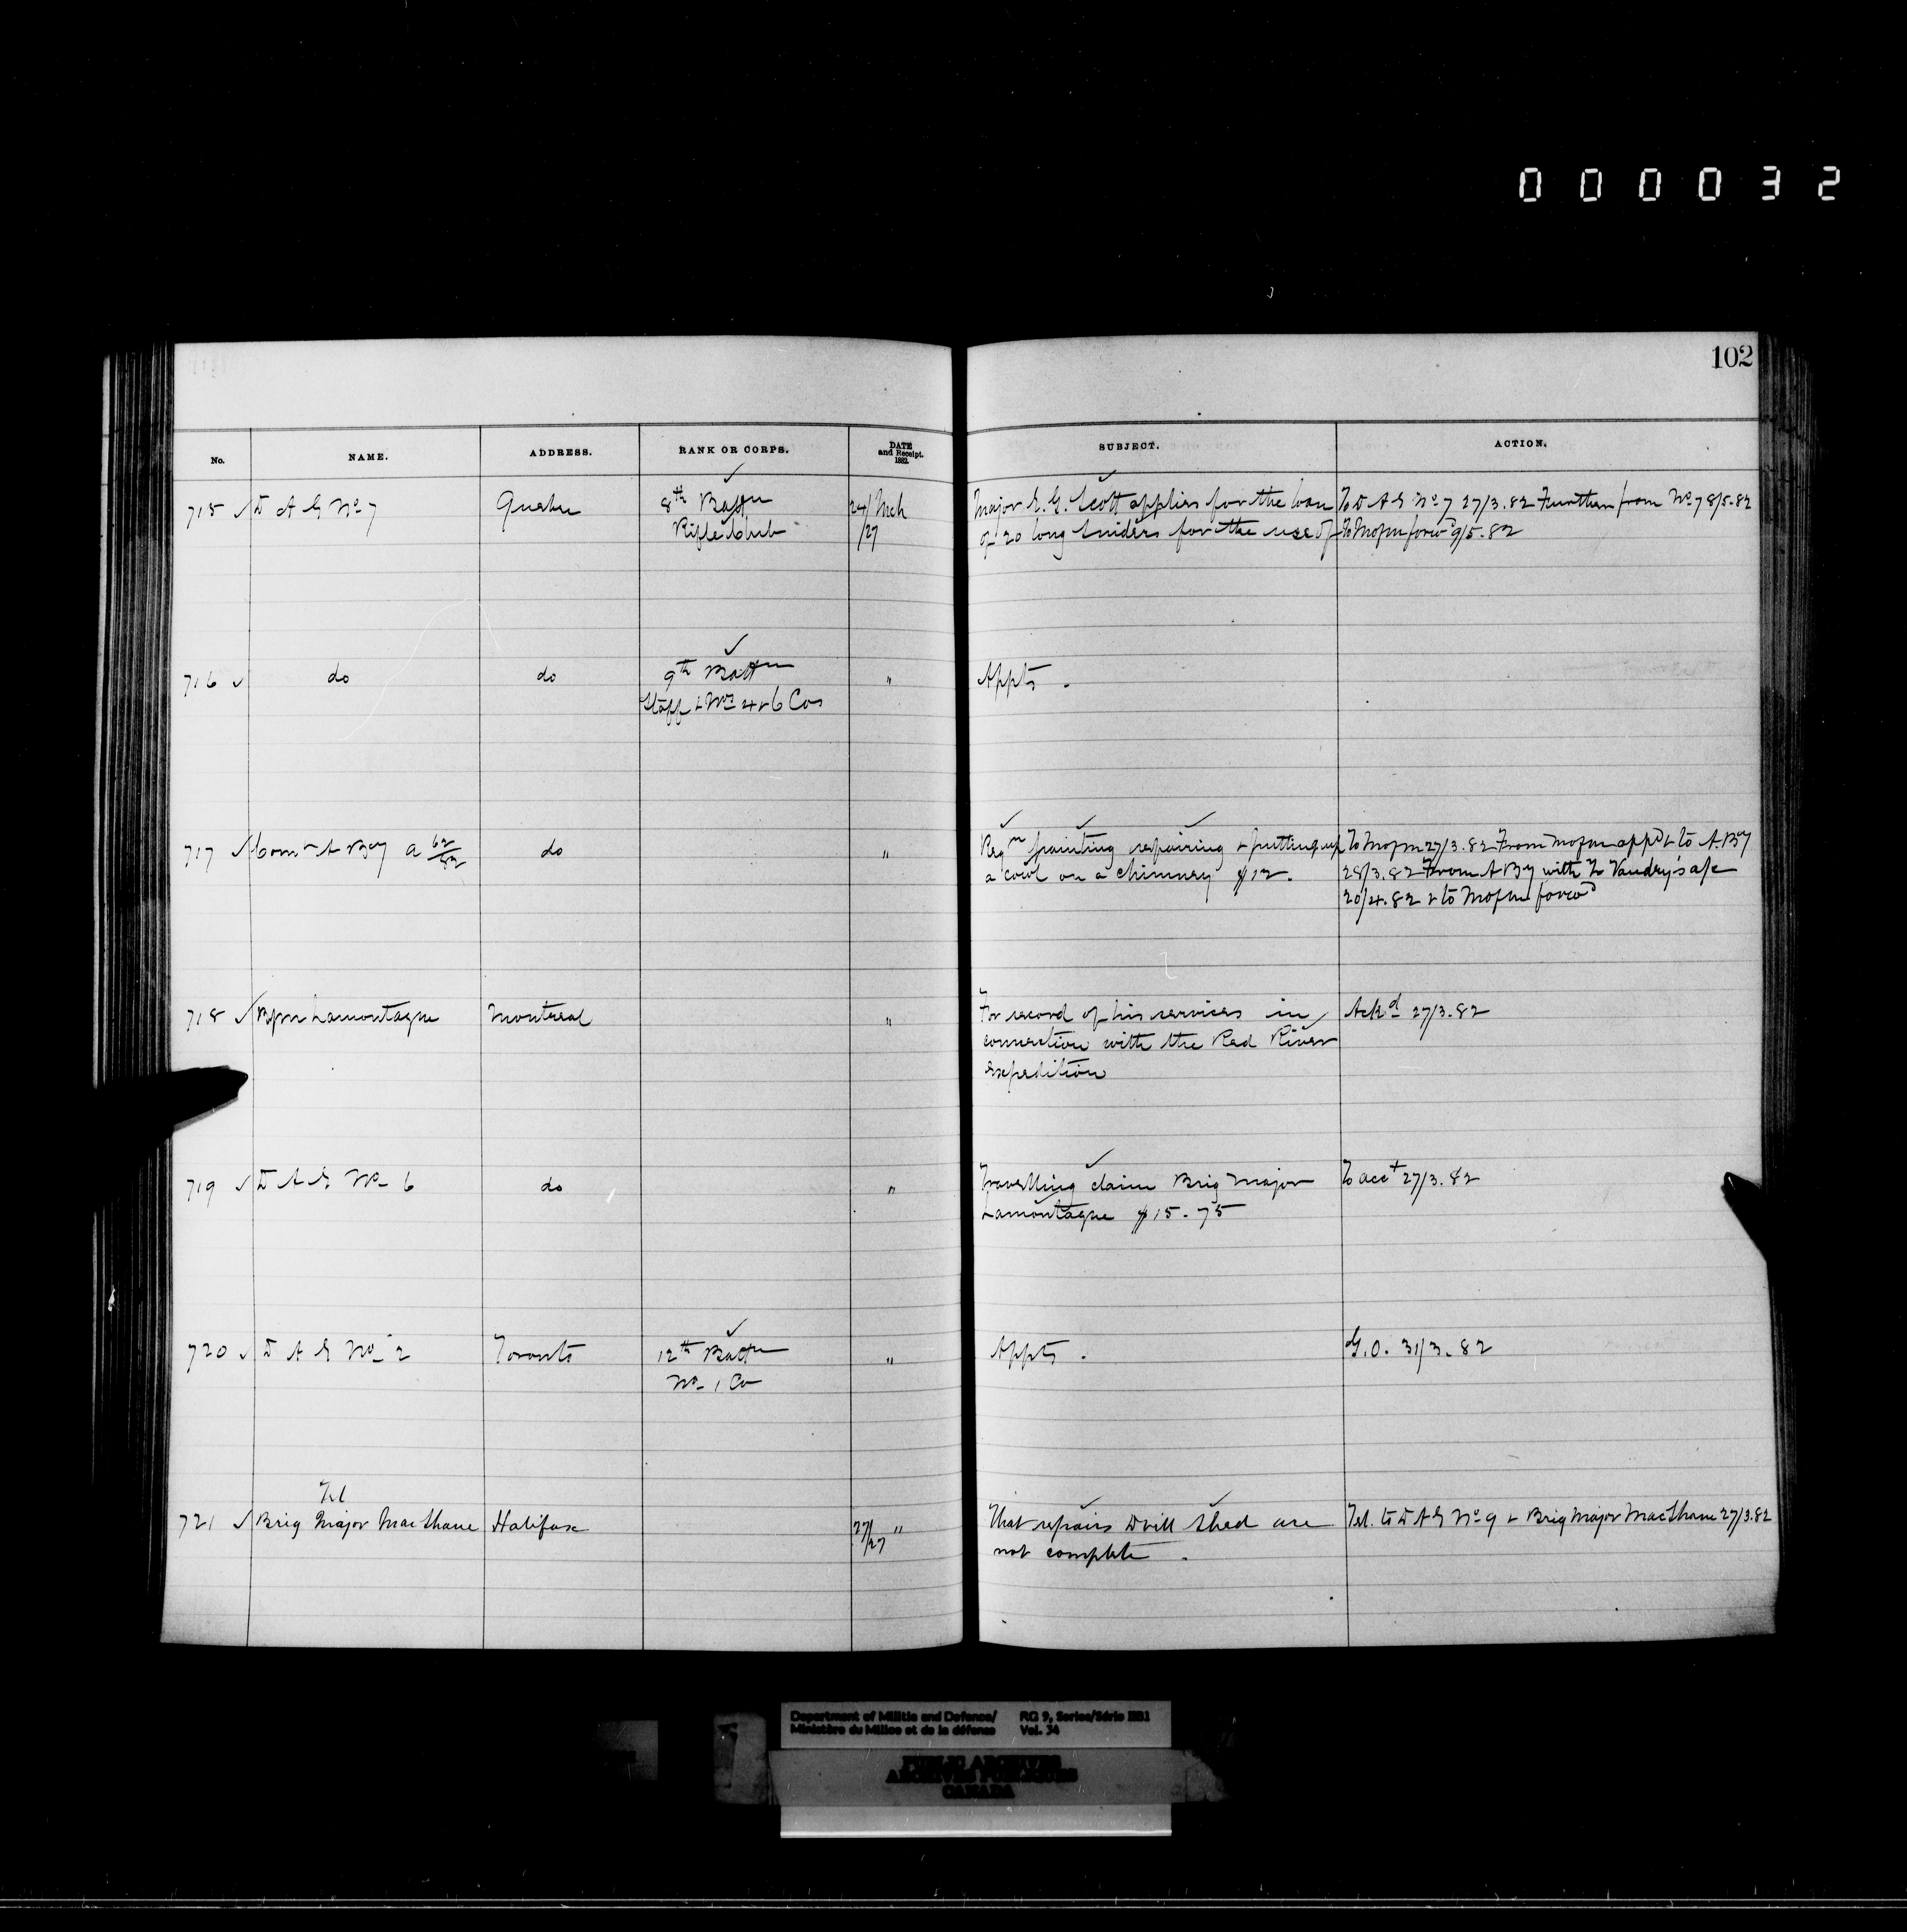 000032
102
No. NAME. ADDRESS. RANK OR CORPS. DATE and Receipt. 1882. SUBJECT. ACTION.
715 ✓ D A G No 7 Quebec 8th Battn 24/ Mch Major E. G. Scott applies for the loan To D A G No 7 27/3.82 Further from No 7 8/5.82
Rifle Club /27 of 20 long Sniders for the use of To Mofm forwd 9/5.82
716 ✓ do do 9th Battn " Appts.
Staff & Nos 4 & 6 Cos
717 ✓ Comt A By a 62/82 do " Reqn painting repairing & putting up To Mofm 27/3.82 From Mofm appd & to A. By
a cowl on a chimney $12. 28/3.82 From A By with Z Vandry's a/c
20/4.82 & to Mofm forwd
718 ✓ Lamontagne Montreal " For record of his services in Ackd 27/3.82
connection with the Red River
expedition
719 ✓ D A G No 6 do " Travelling claim Brig Major To acct 27/3.82
Lamontagne $15.75
720 ✓ D A G No 2 Toronto 12th Battn " Appts. G.O. 31/3.82
No 1 Co
Tel
721 ✓ Brig Major MacShane Halifax 27/27 " That repairs Drill Shed are Tel. to D A G No 9 & Brig Major MacShane 27/3.82
not complete.
Department of Militia and Defence/ RG 9, Series/Série IIB1
Ministère du Milice et de la défense Vol. 34
PUBLIC ARCHIVES
ARCHIVES PUBLIQUES
CANADA